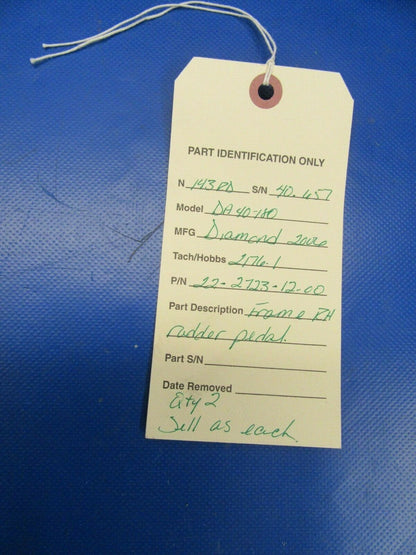 PART IDENTIFICATION ONLY
N 143BD S/N 40.657
Model DA40-180
MFG Diamond 2006
Tach/Hobbs 2176.1
P/N 22-2723-12-00
Part Description Frame RH
rudder pedal.
Part S/N
Date Removed
Qty 2
Sell as each.